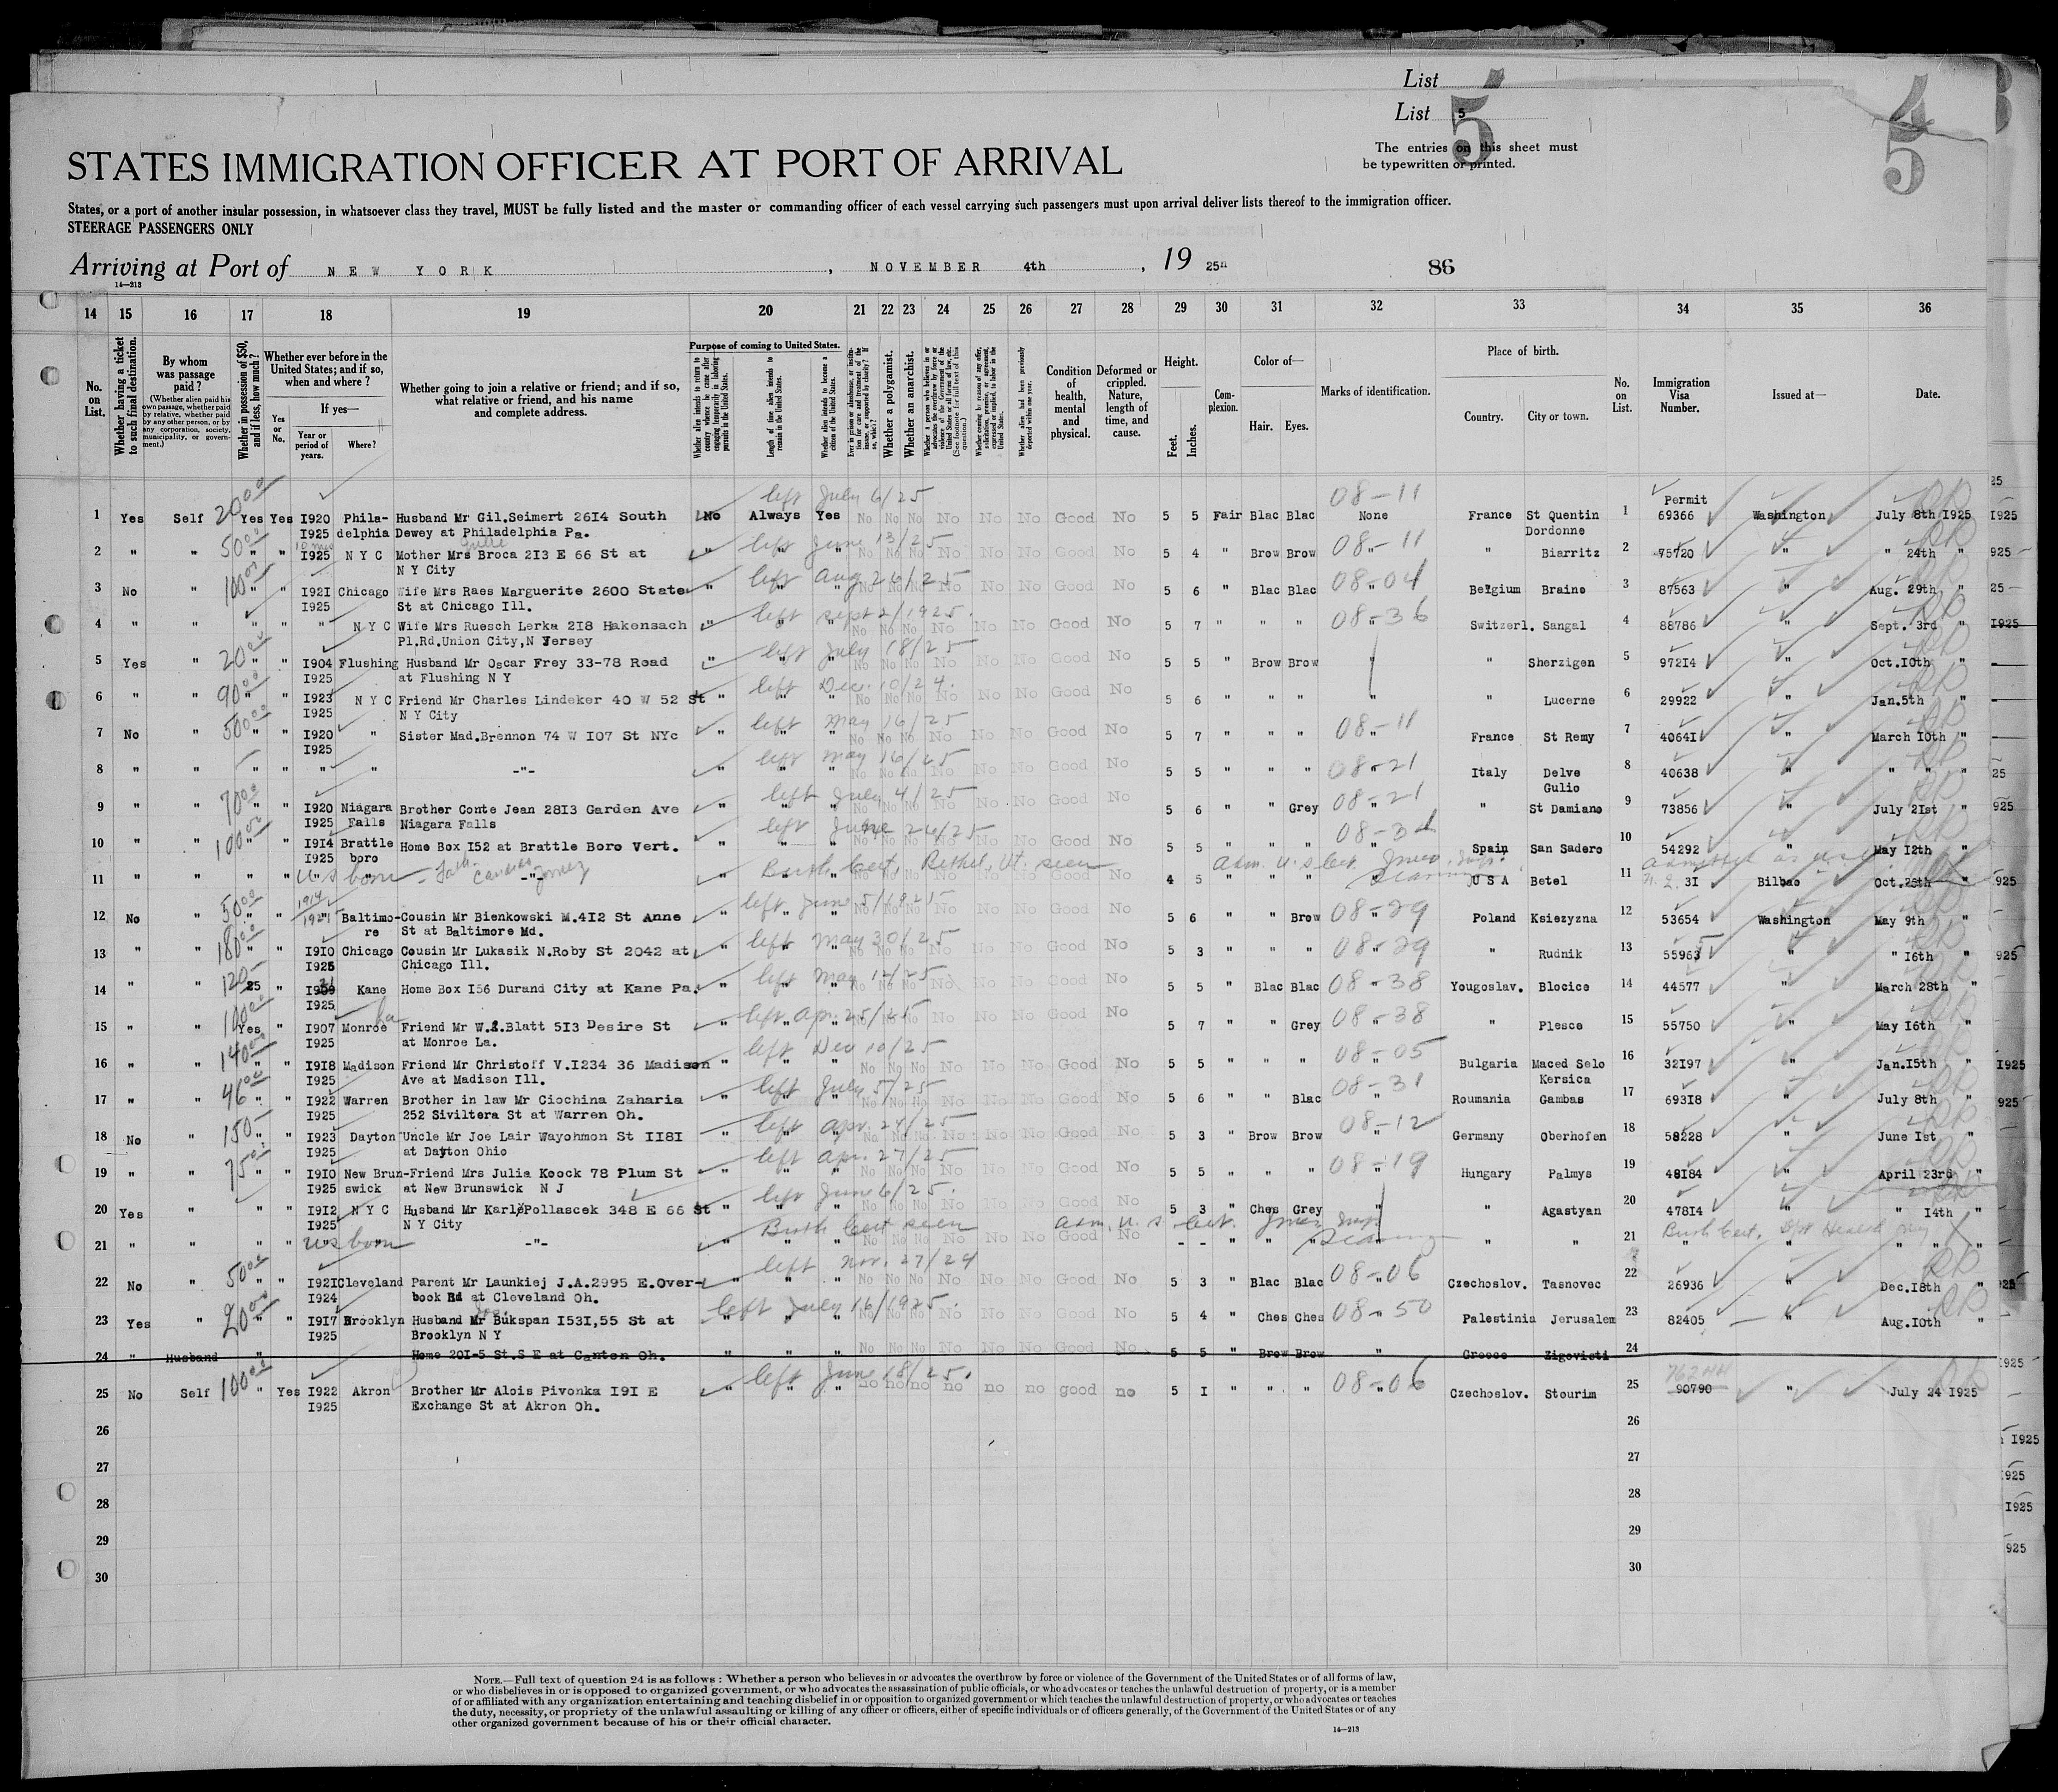 List
List 5
5
4
5
The entries on this sheet must
be typewritten or printed.
STATES IMMIGRATION OFFICER AT PORT OF ARRIVAL
States, or a port of another insular possession, in whatsoever class they travel, MUST be fully listed and the master or commanding officer of each vessel carrying such passengers must upon arrival deliver lists thereof to the immigration officer.
STEERAGE PASSENGERS ONLY
Arriving at Port of NEW YORK, NOVEMBER 4th, 19 25
86
14—213
14 15 16 17 18 19 20 21 22 23 24 25 26 27 28 29 30 31 32 33 34 35 36
No. on List.
Whether having a ticket to such final destination.
By whom was passage paid?
(Whether alien paid his own passage, whether paid by relative, whether paid by any other person, or by any corporation, society, municipality, or government.)
Whether in possession of $50, and if less, how much?
Whether ever before in the United States; and if so, when and where?
Yes or No.
If yes—
Year or period of years.
Where?
Whether going to join a relative or friend; and if so, what relative or friend, and his name and complete address.
Purpose of coming to United States.
Whether alien intends to return to country whence he came after engaging temporarily in laboring pursuits in the United States.
Length of time alien intends to remain in the United States.
Whether alien intends to become a citizen of the United States.
Whether a polygamist.
Whether an anarchist.
Condition of health, mental and physical.
Deformed or crippled. Nature, length of time, and cause.
Height.
Feet. Inches.
Complexion.
Color of—
Hair. Eyes.
Marks of identification.
Place of birth.
Country. City or town.
No. on List.
Immigration Visa Number.
Issued at—
Date.
left July 6/25 08-11 Permit
1 Yes Self 20.00 Yes Yes I920 I925 Phila-delphia Husband Mr Gil.Seimert 26I4 South Dewey at Philadelphia Pa. No Always Yes No No No No No No Good No 5 5 Fair Blac Blac None France St Quentin Dordonne 1 69366 Washington July 8th I925
2 " " 50.00 " " I925 N Y C Mother Mrs Broca 2I3 E 66 St at N Y City " left June 13/25 No No No No No No Good No 5 4 " Brow Brow 08-11 " Biarritz 2 75720 " " 24th "
3 No " 100.00 " " I92I I925 Chicago Wife Mrs Raes Marguerite 2600 State St at Chicago Ill. " left Aug 26/25 No No No No No No Good No 5 6 " Blac Blac 08-04 Belgium Braine 3 87563 " Aug. 29th "
4 " " " " " N Y C Wife Mrs Ruesch Lerka 2I8 Hakensach Pl.Rd.Union City,N Jersey " left Sept 2/1925. No No No No No No Good No 5 7 " " " 08-36 Switzerl. Sangal 4 88786 " Sept. 3rd "
5 Yes " 20.00 " " I904 I925 Flushing Husband Mr Oscar Frey 33-78 Road at Flushing N Y " left July 18/25 No No No No No No Good No 5 5 " Brow Brow " " Sherzigen 5 972I4 " Oct.I0th "
6 " " 90.00 " " I923 I925 N Y C Friend Mr Charles Lindeker 40 W 52 St N Y City " left Dec. 10/24. No No No No No No Good No 5 6 " " " " " Lucerne 6 29922 " Jan.5th "
7 No " 50.00 " " I920 I925 " Sister Mad.Brennon 74 W I07 St NYc " left May 16/25 No No No No No No Good No 5 7 " " " 08-11 France St Remy 7 4064I " March I0th "
8 " " " " " " -"- " left May 16/25 No No No No No No Good No 5 5 " " " 08-21 Italy Delve Gulio 8 40638 " " " "
9 " " 70.00 " " I920 I925 Niagara Falls Brother Conte Jean 28I3 Garden Ave Niagara Falls " left July 4/25 No No No No No No Good No 5 6 " " Grey 08-21 " St Damiano 9 73856 " July 2Ist "
10 " " 100.00 " " I9I4 I925 Brattle boro Home Box I52 at Brattle Boro Vert. " left June 26/25 No No No No No No Good No 5 5 " " " Spain San Sadero 10 54292 " May I2th "
11 " " " " US born -"- " Birth Cert. Bethel, Vt. seen No Good No 4 5 " " " U S A Betel 11 3I Bilbao Oct.25th "
12 No " 50.00 " " 1914 Baltimo-re Cousin Mr Bienkowski M.4I2 St Anne St at Baltimore Md. " left June 5/1925 No No No No No No Good No 5 6 " " Brow 08-29 Poland Ksiezyzna 12 53654 Washington May 9th "
13 " " 180.00 " " I9I0 I925 Chicago Cousin Mr Lukasik N.Roby St 2042 at Chicago Ill. " left May 30/25 No No No No No No Good No 5 3 " " " 08-29 " Rudnik 13 55963 " " I6th "
14 " " 120- 25 " I925 Kane Home Box I56 Durand City at Kane Pa. " left May 12/25 No No No No No No Good No 5 5 " Blac Blac 08-38 Yougoslav. Blocice 14 44577 " March 28th "
15 " " 100.00 Yes " I907 I925 Monroe La Friend Mr W.I.Blatt 5I3 Desire St at Monroe La. " left Apr. 25/25 No No No No No No Good No 5 7 " " Grey 08-38 " Plesce 15 55750 " May I6th "
16 " " 140.00 " " I9I8 I925 Madison Friend Mr Christoff V.I234 36 Madison Ave at Madison Ill. " left Dec 10/25 No No No No No No Good No 5 5 " " " 08-05 Bulgaria Maced Selo Kersica 16 32I97 " Jan.I5th "
17 " " 46.00 " " I922 I925 Warren Brother in law Mr Ciochina Zaharia 252 Siviltera St at Warren Oh. " left July 5/25 No No No No No No Good No 5 6 " " Blac 08-31 Roumania Gambas 17 693I8 " July 8th "
18 No " 150- " " I923 I925 Dayton Uncle Mr Joe Lair Wayohmon St II8I at Dayton Ohio " left Apr. 24/25 No No No No No No Good No 5 3 " Brow Brow 08-12 Germany Oberhofen 18 58228 " June Ist "
19 " " 75.00 " " I9I0 I925 New Brun-swick Friend Mrs Julia Koock 78 Plum St at New Brunswick N J " left Apr. 27/25 No No No No No No Good No 5 5 " " " 08-19 Hungary Palmys 19 48I84 " April 23rd "
20 Yes " " " I9I2 I925 N Y C Husband Mr Karl Pollascek 348 E 66 St N Y City " left June 6/25. No No No No No No Good No 5 3 " Ches Grey " " Agastyan 20 478I4 " " I4th "
21 " " " " US born -"- " Birth Cert seen No No No No No No Good No - - " " " " " " 21 Birth Cert. " " " "
22 No " 50.00 " " I92I I924 Cleveland Parent Mr Launkiej J.A.2995 E.Over-book Rd at Cleveland Oh. " left Nov. 27/24 No No No No No No Good No 5 3 " Blac Blac 08-06 Czechoslov. Tasnovec 22 26936 " Dec.I8th "
23 Yes " 20.00 " " I9I7 I925 Brooklyn Husband Mr Bukspan I53I,55 St at Brooklyn N Y " left July 16/1925. No No No No No No Good No 5 4 " Ches Ches 08-50 Palestinia Jerusalem 23 82405 " Aug.I0th "
24 " Husband " Home 20I-5 St.S E at Canton Oh. " " " No No No No No No Good No 5 5 " Brow Brow " Greece Zigovisti 24
25 No Self 100.00 " Yes I922 I925 Akron Brother Mr Alois Pivonka I9I E Exchange St at Akron Oh. " left June 18/25. no no no no no no good no 5 I " " " 08-06 Czechoslov. Stourim 25 90790 " July 24 I925
26 26
27 27
28 28
29 29
30 30
NOTE.—Full text of question 24 is as follows: Whether a person who believes in or advocates the overthrow by force or violence of the Government of the United States or of all forms of law,
or who disbelieves in or is opposed to organized government, or who advocates the assassination of public officials, or who advocates or teaches the unlawful destruction of property, or is a member
of or affiliated with any organization entertaining and teaching disbelief in or opposition to organized government or which teaches the unlawful destruction of property, or who advocates or teaches
the duty, necessity, or propriety of the unlawful assaulting or killing of any officer or officers, either of specific individuals or of officers generally, of the Government of the United States or of any
other organized government because of his or their official character.
14—213